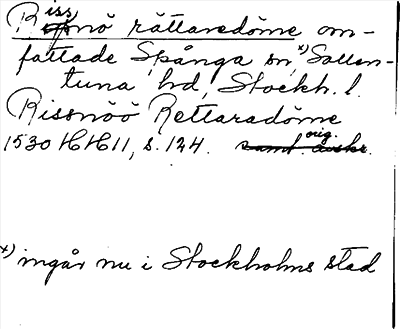 Rissnö rättaredöme om-
fattade Spånga sn, x) Sollen-
tuna hd, Stockh. l.
Rissnöö Rettaradöme
1530 HH 11, s. 124. samt. avskr. orig.
x) ingår nu i Stockholms stad